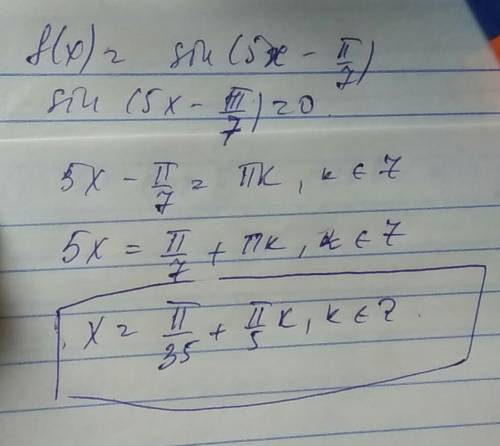 f(x) = sin(5x - π/7)
sin(5x - π/7) = 0
5x - π/7 = πk, k ∈ Z
5x = π/7 + πk, k ∈ Z
x = π/35 + π/5 k, k ∈ Z.